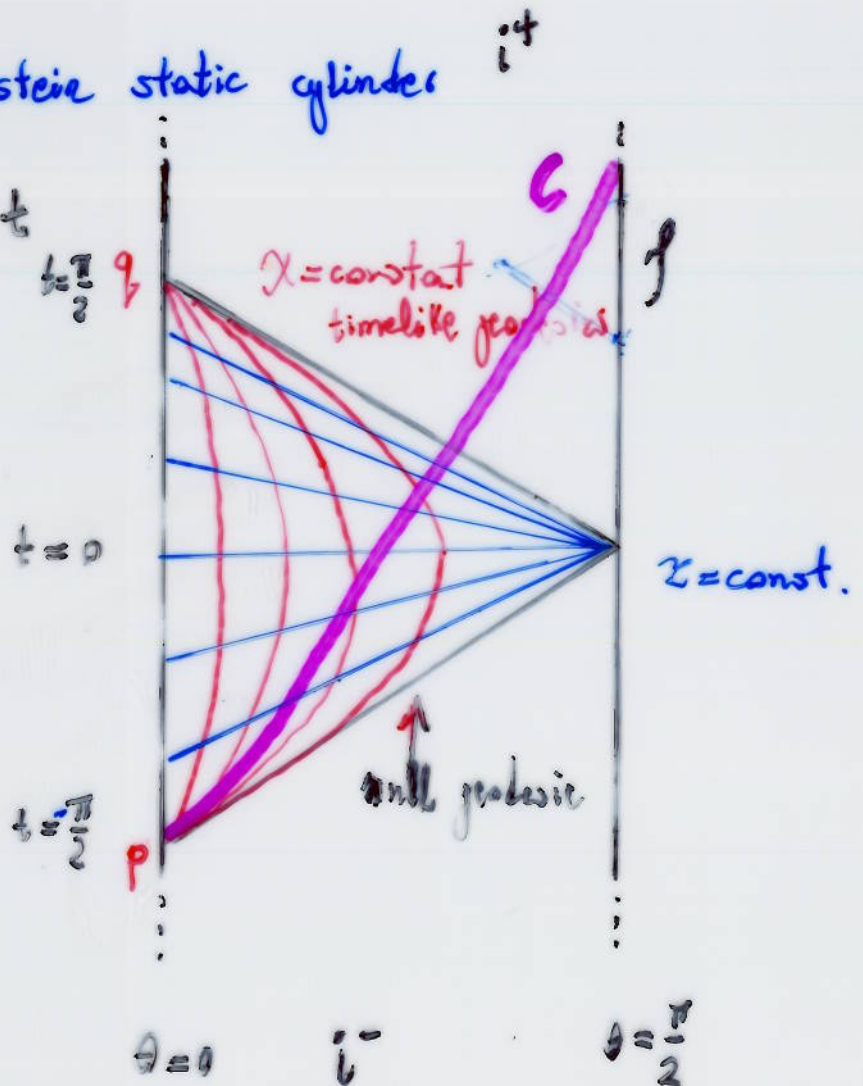 i⁺
stein static cylinder
t
t=π/2 q
χ=constat
timelike geodesics
C
t=0
τ=const.
null geodesic
t=-π/2
p
θ=0
i⁻
θ=π/2